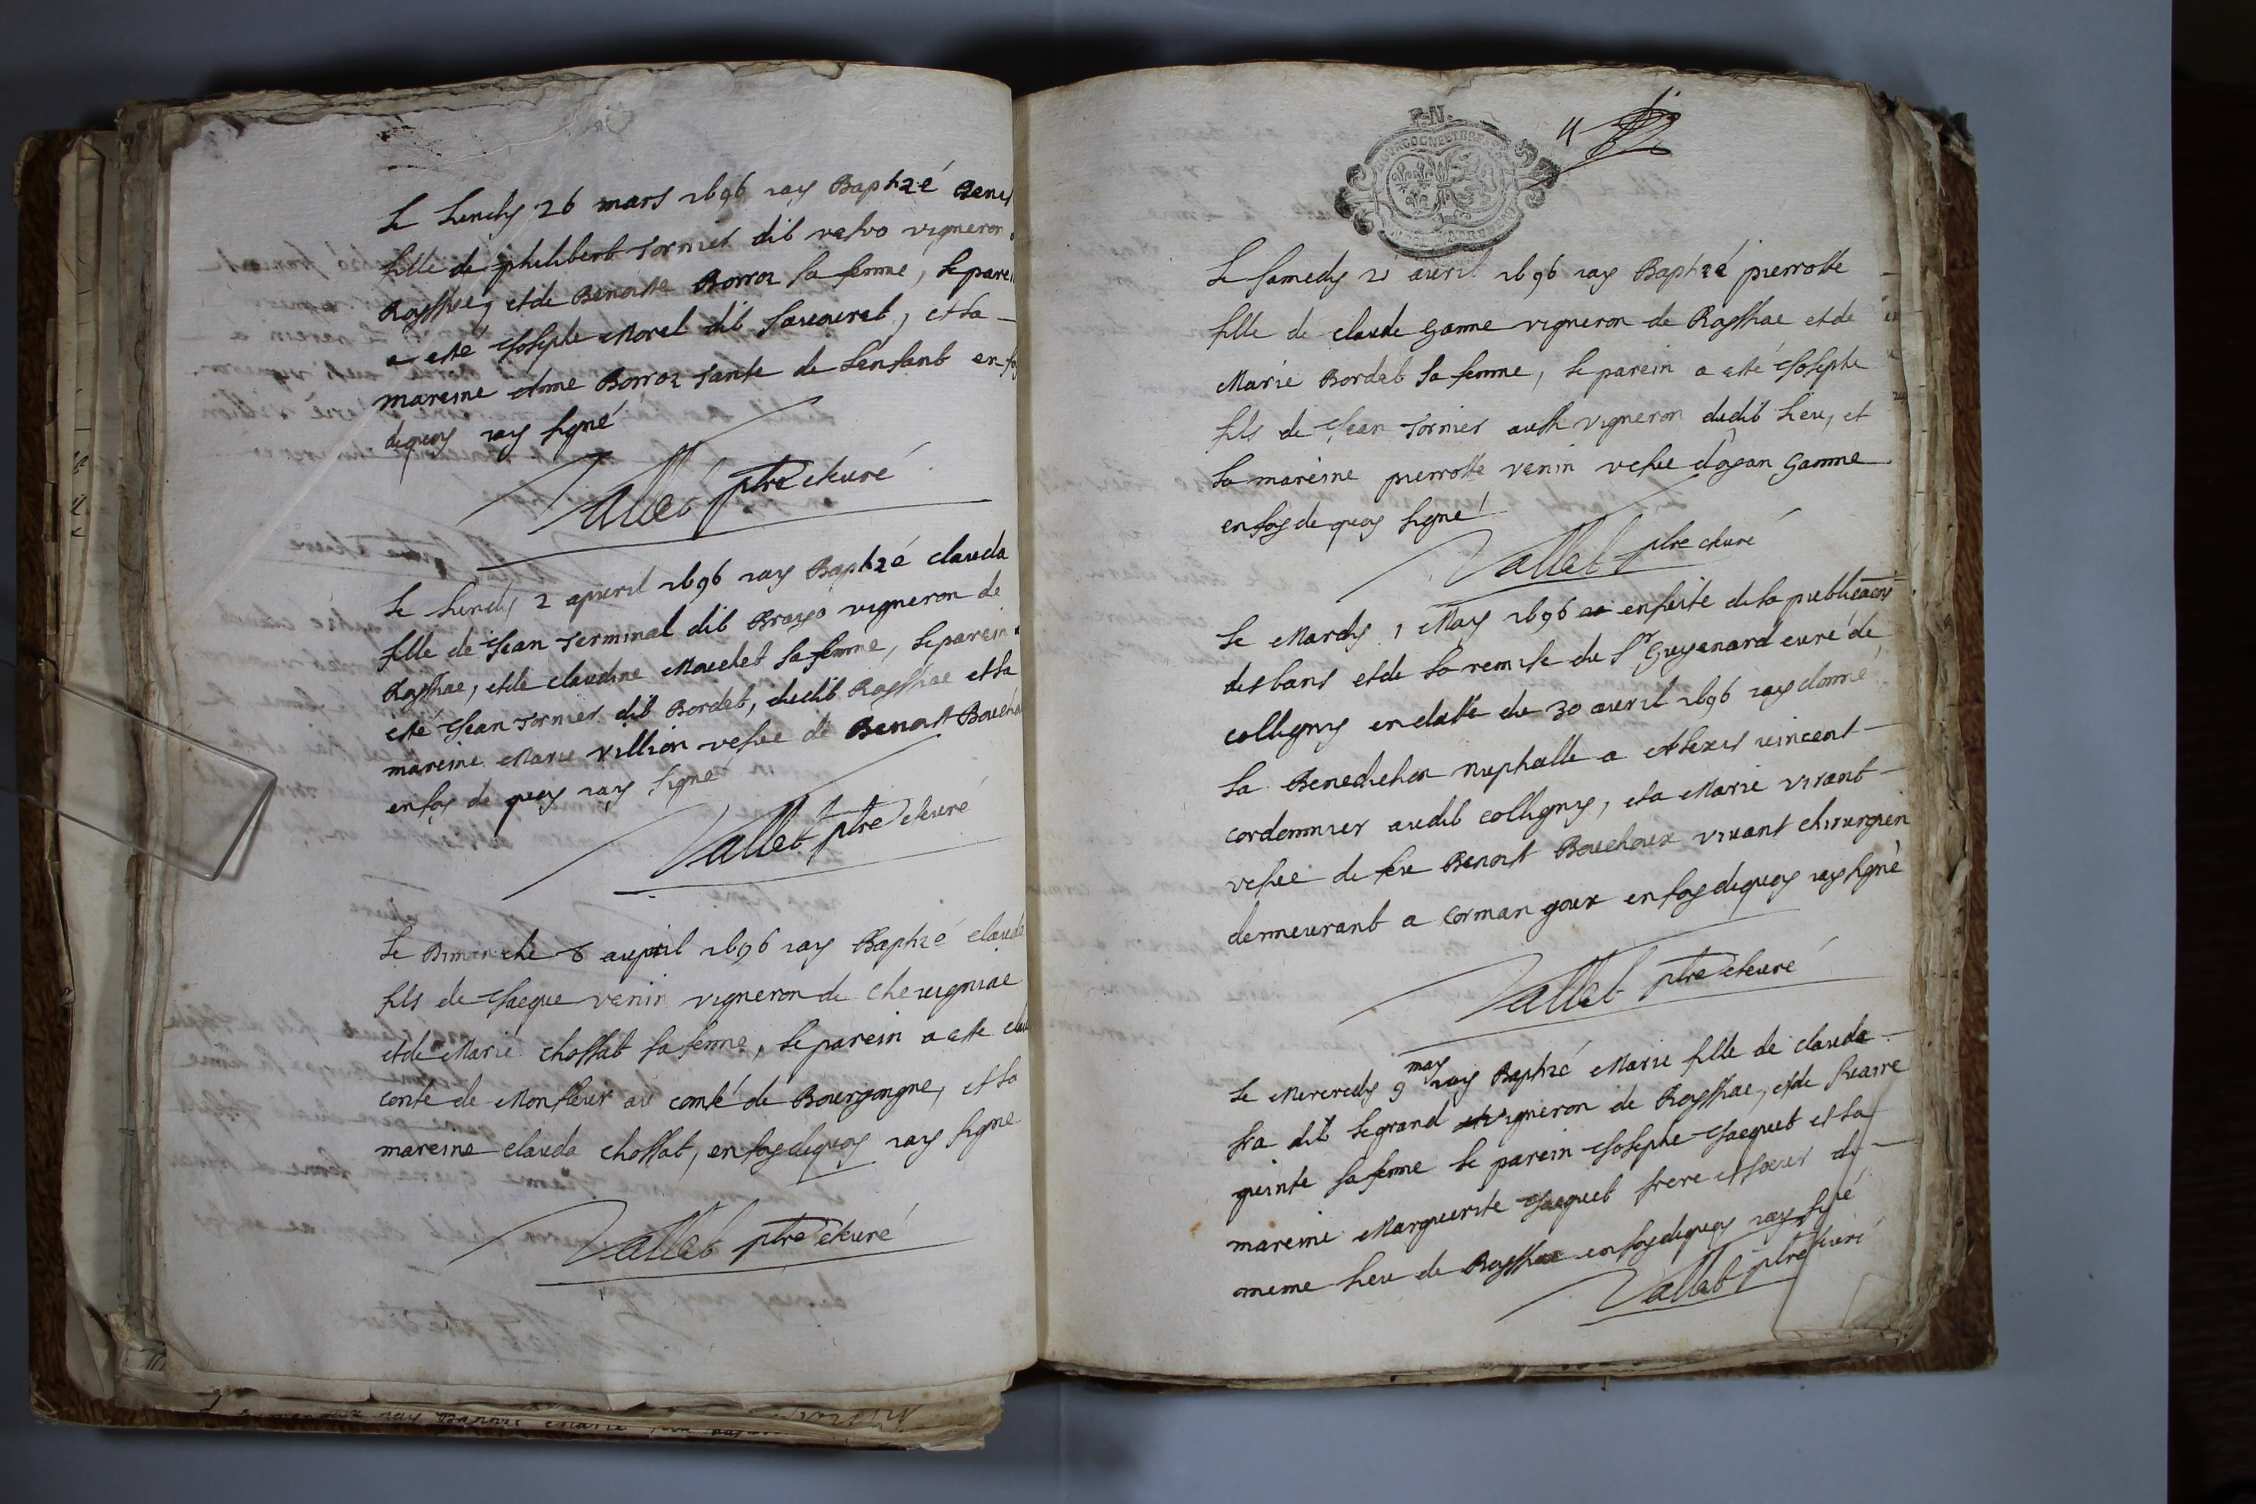 Le Lundy 26 mars 1696 iay Baptizé Benoi
fille de philibert Tornier dit vesvo vigneron
Royssiae, et de Benoitte Borroz sa femme, Le parei
a esté Joseph Morel dit Savouret, et La
mareine Anne Borroz Tante de Lenfant en foy
dequoy iay signé
Vallet ptre et curé
Le Lundy 2 apvril 1696 iay Baptizé clauda
fille de Jean Terminal dit Brayo vigneron de
Royssiae, et de claudine Mouchet sa femme, Le parein a
esté Jean Tornier dit Bordet, dudit Royssiae et La
mareine Marie Villion vefve de Benoist Boucho
en foy de quoy iay signé
Vallet ptre et curé
Le Dimanche 8 apvril 1696 iay Baptizé claude
fils de Jacque venin vigneron de chevigniae
et de Marie chossat sa femme, Le parein a esté clau
conte de Monfleur au comté de Bourgongne, et La
mareine clauda chossat, en foy dequoy iay signé
Vallet ptre et curé
4
F. N.
Le samedy 21 avril 1696 iay Baptizé pierrotte
fille de claude Gamme vigneron de Royssiae et de
Marie Bordet sa femme, Le parein a esté Joseph
fils de Jean Tornier aussi vigneron dudit Lieu, et
La mareine pierrotte venin vefve d'ogan Gamme
en foy de quoy signé
Vallet ptre et curé
Le Mardy 1 May 1696 en suite de La publication
des bans et de La remise du Sr Guyenard curé de
colligny en datte du 30 avril 1696 iay donné
La Benediction nuptialle a Alexis vincent
cordonnier audit colligny, et a Marie virant
vefve de feu Benoist Bouchoux vivant chirurgien
demeurant a cormangoux en foy dequoy iay signé
Vallet ptre et curé
Le Mercredy 9 may iay Baptizé Marie fille de claude
fra dit Legrand vigneron de Royssiae, et de
quinte sa femme Le parein Joseph Jacquet et La
mareine Marguerite Jacquet frere et soeur du
meme Lieu de Royssiae en foy dequoy iay signé
Vallet ptre curé